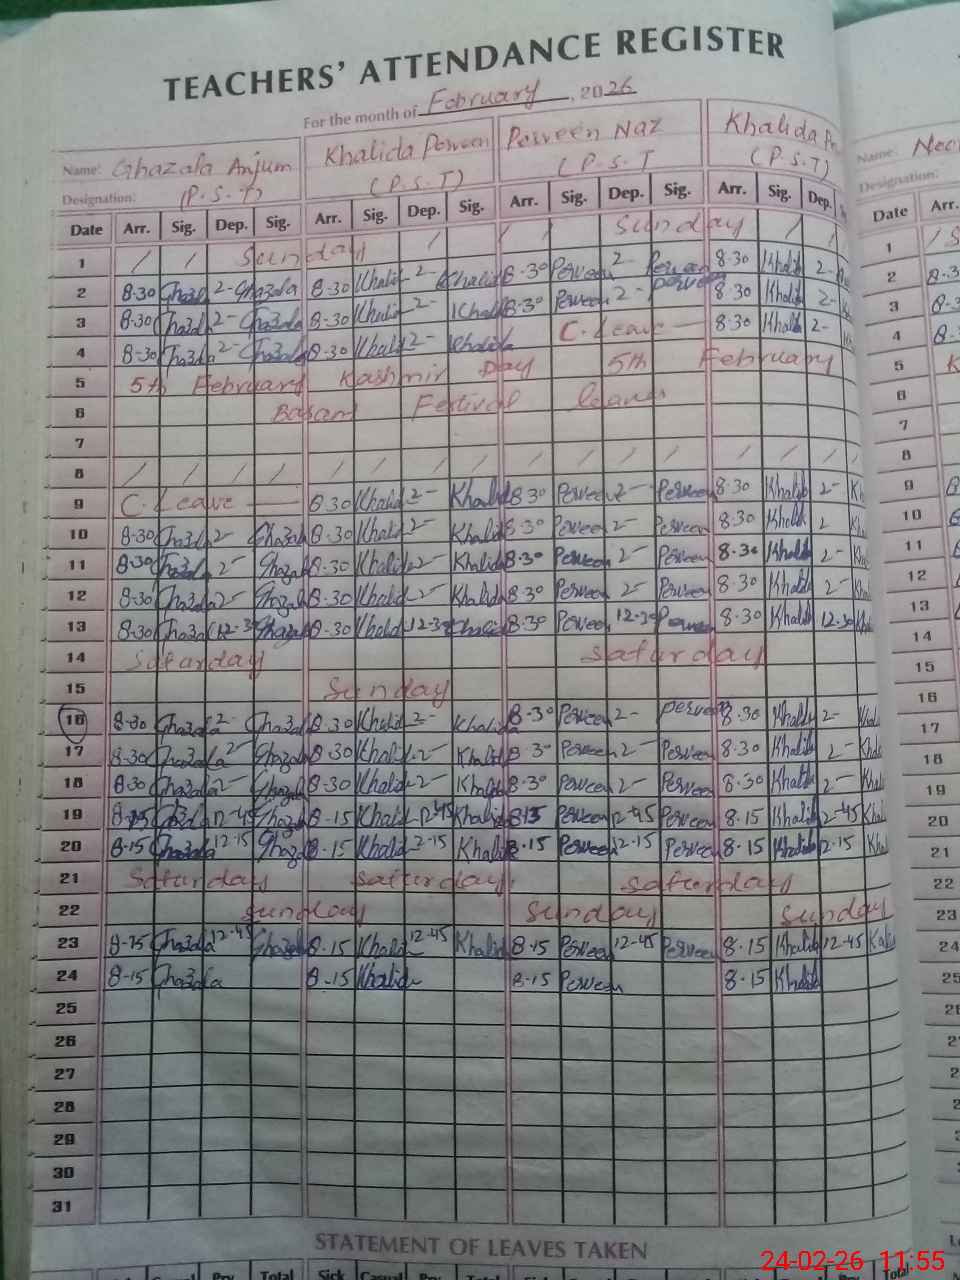 TEACHERS' ATTENDANCE REGISTER
For the month of February, 2026
Name: Ghazala Anjum Khalida Perveen Perveen Naz Khalida Name:
Designation: (P.S.T) (P.S.T) (P.S.T (P.S.T) Designation:
Date Arr. Sig. Dep. Sig. Arr. Sig. Dep. Sig. Arr. Sig. Dep. Sig. Arr. Sig. Dep. Date Arr.
1 / / Sunday / / / Sunday / / 1
2 8-30 Ghazala 2- Ghazala 8-30 Khalida 2- Khalida 8-30 Perveen 2- Perveen 8-30 Khalida 2- 2
3 8-30 Ghazala 2- Ghazala 8-30 Khalida 2- Khalida 8-30 Perveen 2- Perveen 8-30 Khalida 2- 3
4 8-30 Ghazala 2- Ghazala 8-30 Khalida 2- Khalida C. Leave 8-30 Khalida 2- 4
5 5th February Kashmir Day 5th February 5
6 Basant Festival leaves 6
7 7
8 / / / / / / / / / / / / / / / 8
9 C. Leave 8-30 Khalida 2- Khalida 8-30 Perveen 2- Perveen 8-30 Khalida 2- 9
10 8-30 Ghazala 2- Ghazala 8-30 Khalida 2- Khalida 8-30 Perveen 2- Perveen 8-30 Khalida 2 10
11 8-30 Ghazala 2- Ghazala 8-30 Khalida 2- Khalida 8-30 Perveen 2- Perveen 8-30 Khalida 2- 11
12 8-30 Ghazala 2- Ghazala 8-30 Khalida 2- Khalida 8-30 Perveen 2- Perveen 8-30 Khalida 2- 12
13 8-30 Ghazala 12-30 Ghazala 8-30 Khalida 12-30 Khalida 8-30 Perveen 12-30 Perveen 8-30 Khalida 12-30 13
14 Saturday Saturday 14
15 Sunday 15
16 8-30 Ghazala 2- Ghazala 8-30 Khalida 2- Khalida 8-30 Perveen 2- Perveen 8-30 Khalida 2- 16
17 8-30 Ghazala 2- Ghazala 8-30 Khalida 2- Khalida 8-30 Perveen 2- Perveen 8-30 Khalida 2- 17
18 8-30 Ghazala 2- Ghazala 8-30 Khalida 2- Khalida 8-30 Perveen 2- Perveen 8-30 Khalida 2- 18
19 8-15 Ghazala 12-45 Ghazala 8-15 Khalida 12-45 Khalida 8-15 Perveen 12-45 Perveen 8-15 Khalida 12-45 19
20 8-15 Ghazala 12-15 Ghazala 8-15 Khalida 12-15 Khalida 8-15 Perveen 12-15 Perveen 8-15 Khalida 12-15 20
21 Saturday Saturday Saturday 21
22 Sunday Sunday Sunday 22
23 8-15 Ghazala 12-45 Ghazala 8-15 Khalida 12-45 Khalida 8-15 Perveen 12-45 Perveen 8-15 Khalida 12-45 23
24 8-15 Ghazala 8-15 Khalida 8-15 Perveen 8-15 Khalida 24
25 25
26
27
28
29
30
31
STATEMENT OF LEAVES TAKEN
Total Sick Total
24-02-26 11:55